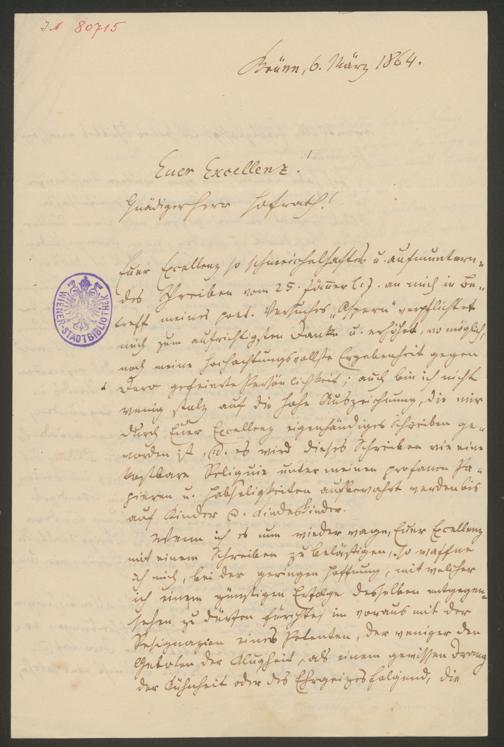 JN 80715
Brünn, 6. März 1864.
Euer Excellenz!
Gnädiger Herr Hofrath!
Euer Excellenz so schmeichelhaftes u. aufmuntern-
des Schreiben vom 25. Jänner l. J. an mich in Be-
treff meines poet. Versuches „Aspern“ verpflichtet
mich zum aufrichtigsten Danke u. erhöhet, wo möglich,
noch meine hochachtungsvollste Ergebenheit gegen
Dero gefeierte Persönlichkeit; auch bin ich nicht
wenig stolz auf die hohe Auszeichnung, die mir
durch Euer Excellenz eigenhändiges Schreiben ge-
worden ist, u. es wird dieses Schreiben wie eine
kostbare Reliquie unter meinen profanen Pa-
pieren u. Habseligkeiten aufbewahrt werden bis
auf Kinder u. Kindeskinder.
Wenn ich es nun wieder wage, Euer Excellenz
mit einem Schreiben zu belästigen, so waffne
ich mich, bei der geringen Hoffnung, mit welcher
ich einem günstigen Erfolge desselben entgegen-
sehen zu dürfen fürchte, im voraus mit der
Resignazion eines Petenten, der weniger den
Geboten der Klugheit, als einem gewissen Drang
der Kühnheit oder des Ehrgeizes folgend, die
WIENER STADTBIBLIOTHEK